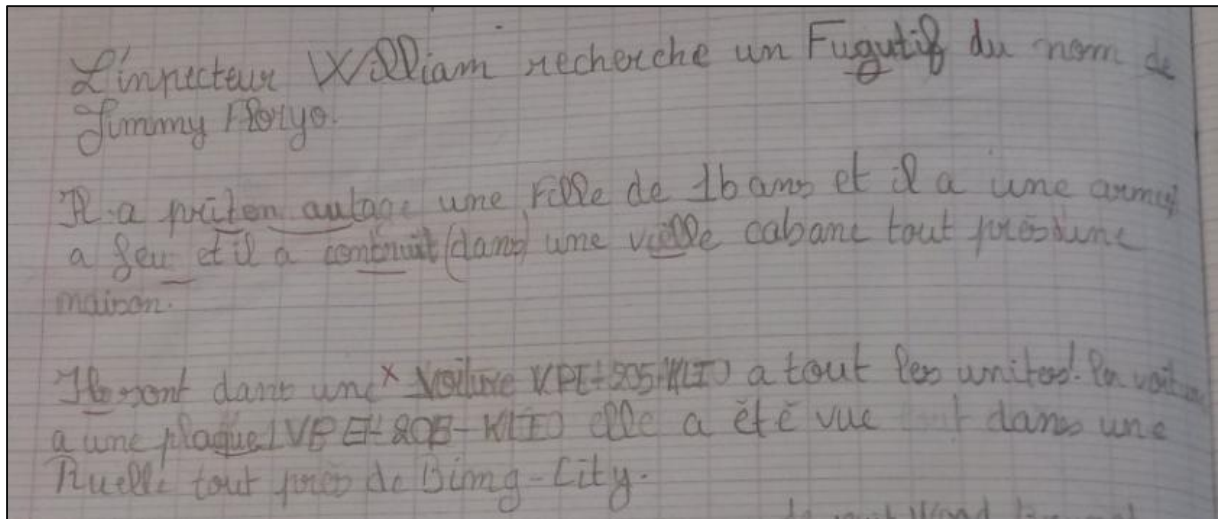 L'inpecteur William recherche un Fugutif du nom de
Jimmy Floryo.
Il a priten autage une fille de 16 ans et il a une arme
a feu et il a contruit (dans) une vielle cabane tout près dune
maison.
Ils sont dans une x Voiture VPE+205-KLIO a tout les unites! la voit
a une plaque VPE+205-KLIO elle a été vue dans une
Ruelle tout près de Bimg-City.